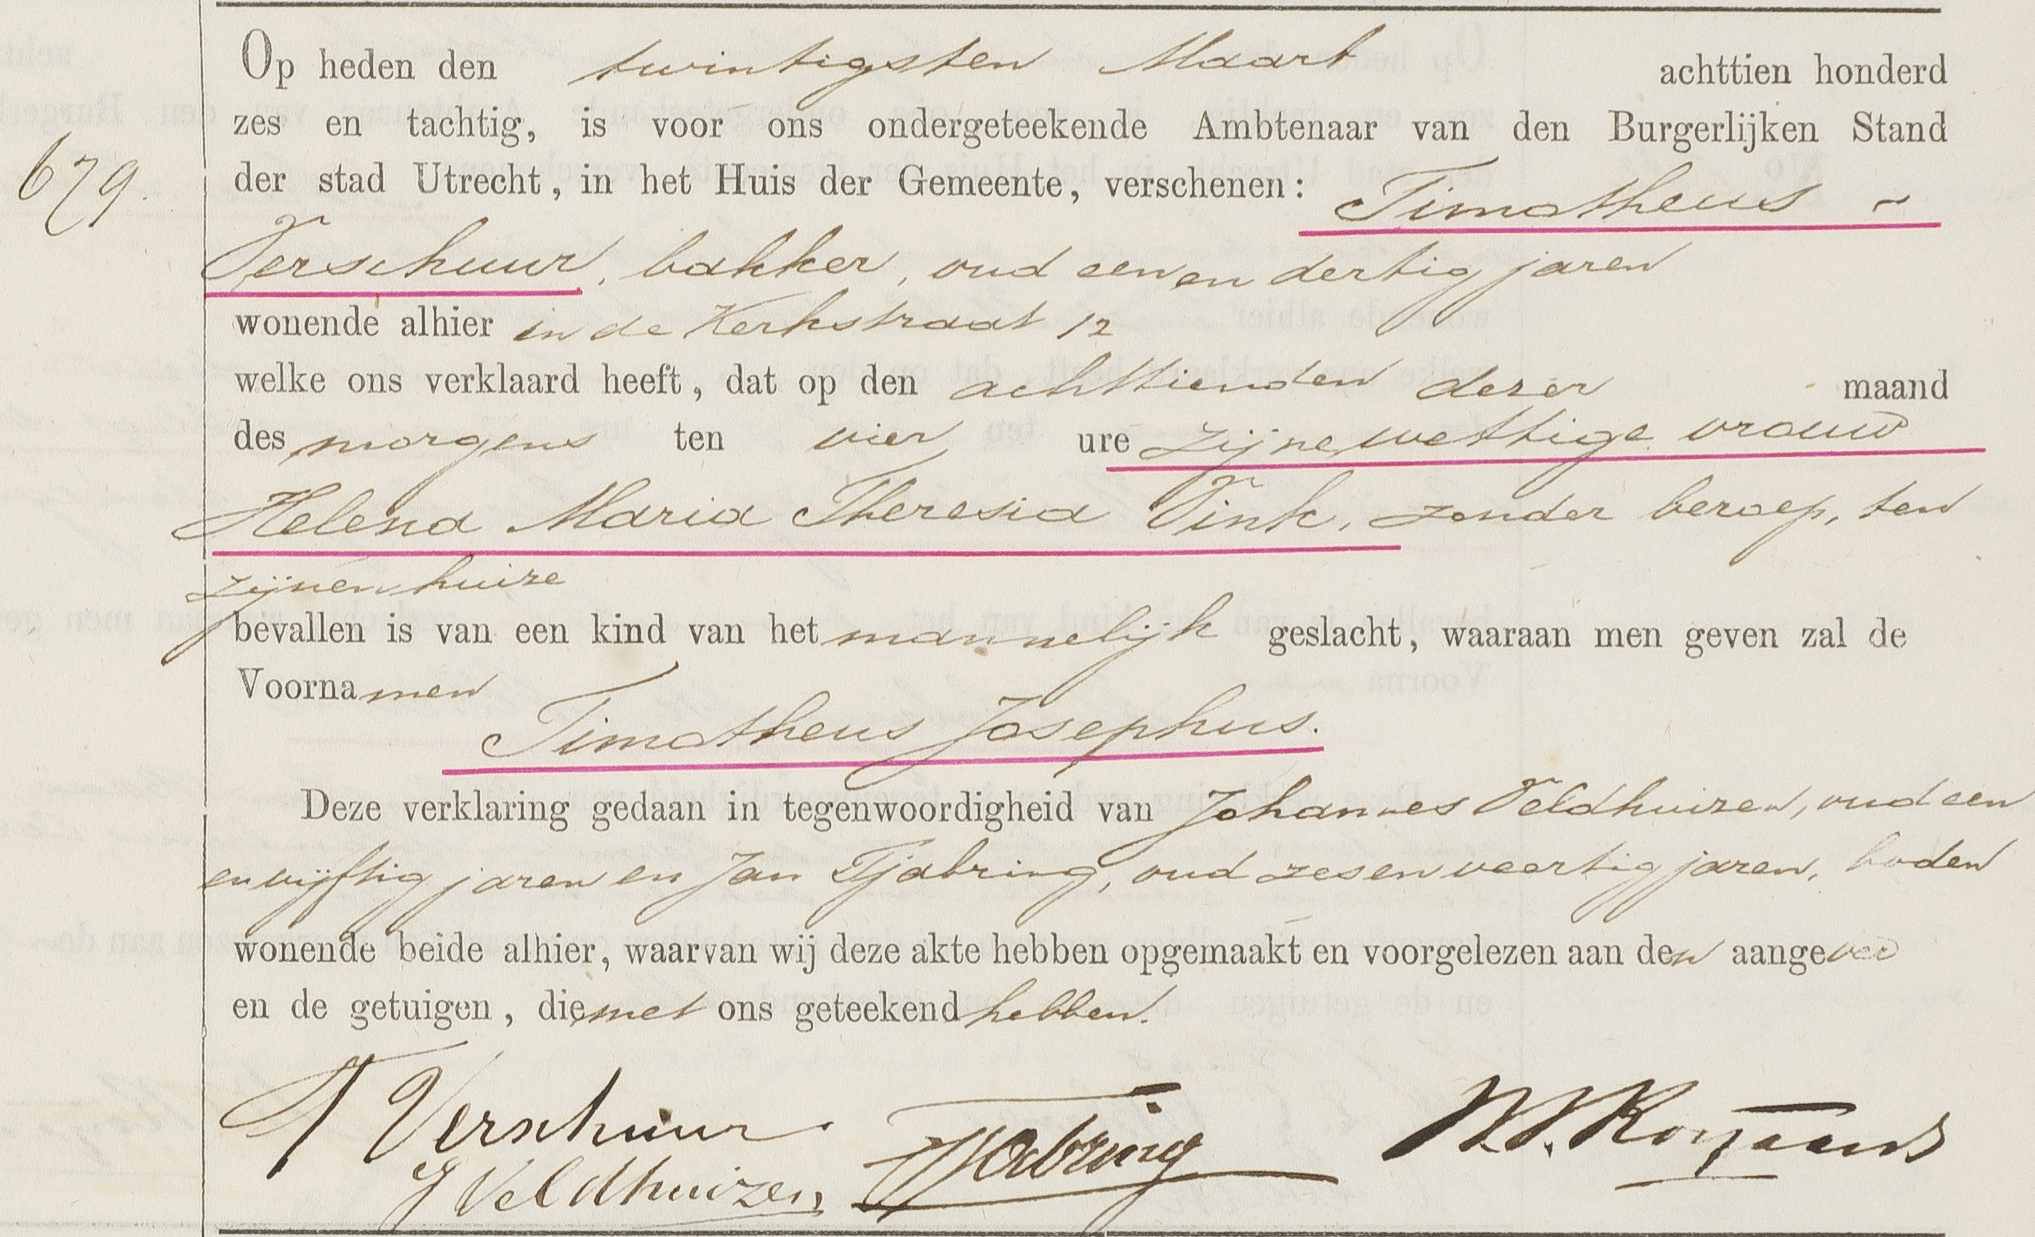 Op heden den twintigsten Maart achttien honderd
zes en tachtig, is voor ons ondergeteekende Ambtenaar van den Burgerlijken Stand
679.
der stad Utrecht, in het Huis der Gemeente, verschenen: Timotheus -
Verschuur, bakker, oud een en dertig jaren
wonende alhier in de Kerkstraat 12
welke ons verklaard heeft, dat op den achttienden dezer maand
des morgens ten vier ure zijne wettige vrouw
Helena Maria Theresia Vink, zonder beroep, ten
zijnen huize
bevallen is van een kind van het mannelijk geslacht, waaraan men geven zal de
Voornamen
Timotheus Josephus.
Deze verklaring gedaan in tegenwoordigheid van Johannes Veldhuizen, oud een
en vijftig jaren en Jan Tjabring, oud zes en veertig jaren, boden
wonende beide alhier, waarvan wij deze akte hebben opgemaakt en voorgelezen aan den aangever
en de getuigen, die met ons geteekend hebben.
T Verschuur
J Veldhuizen
Tjabring